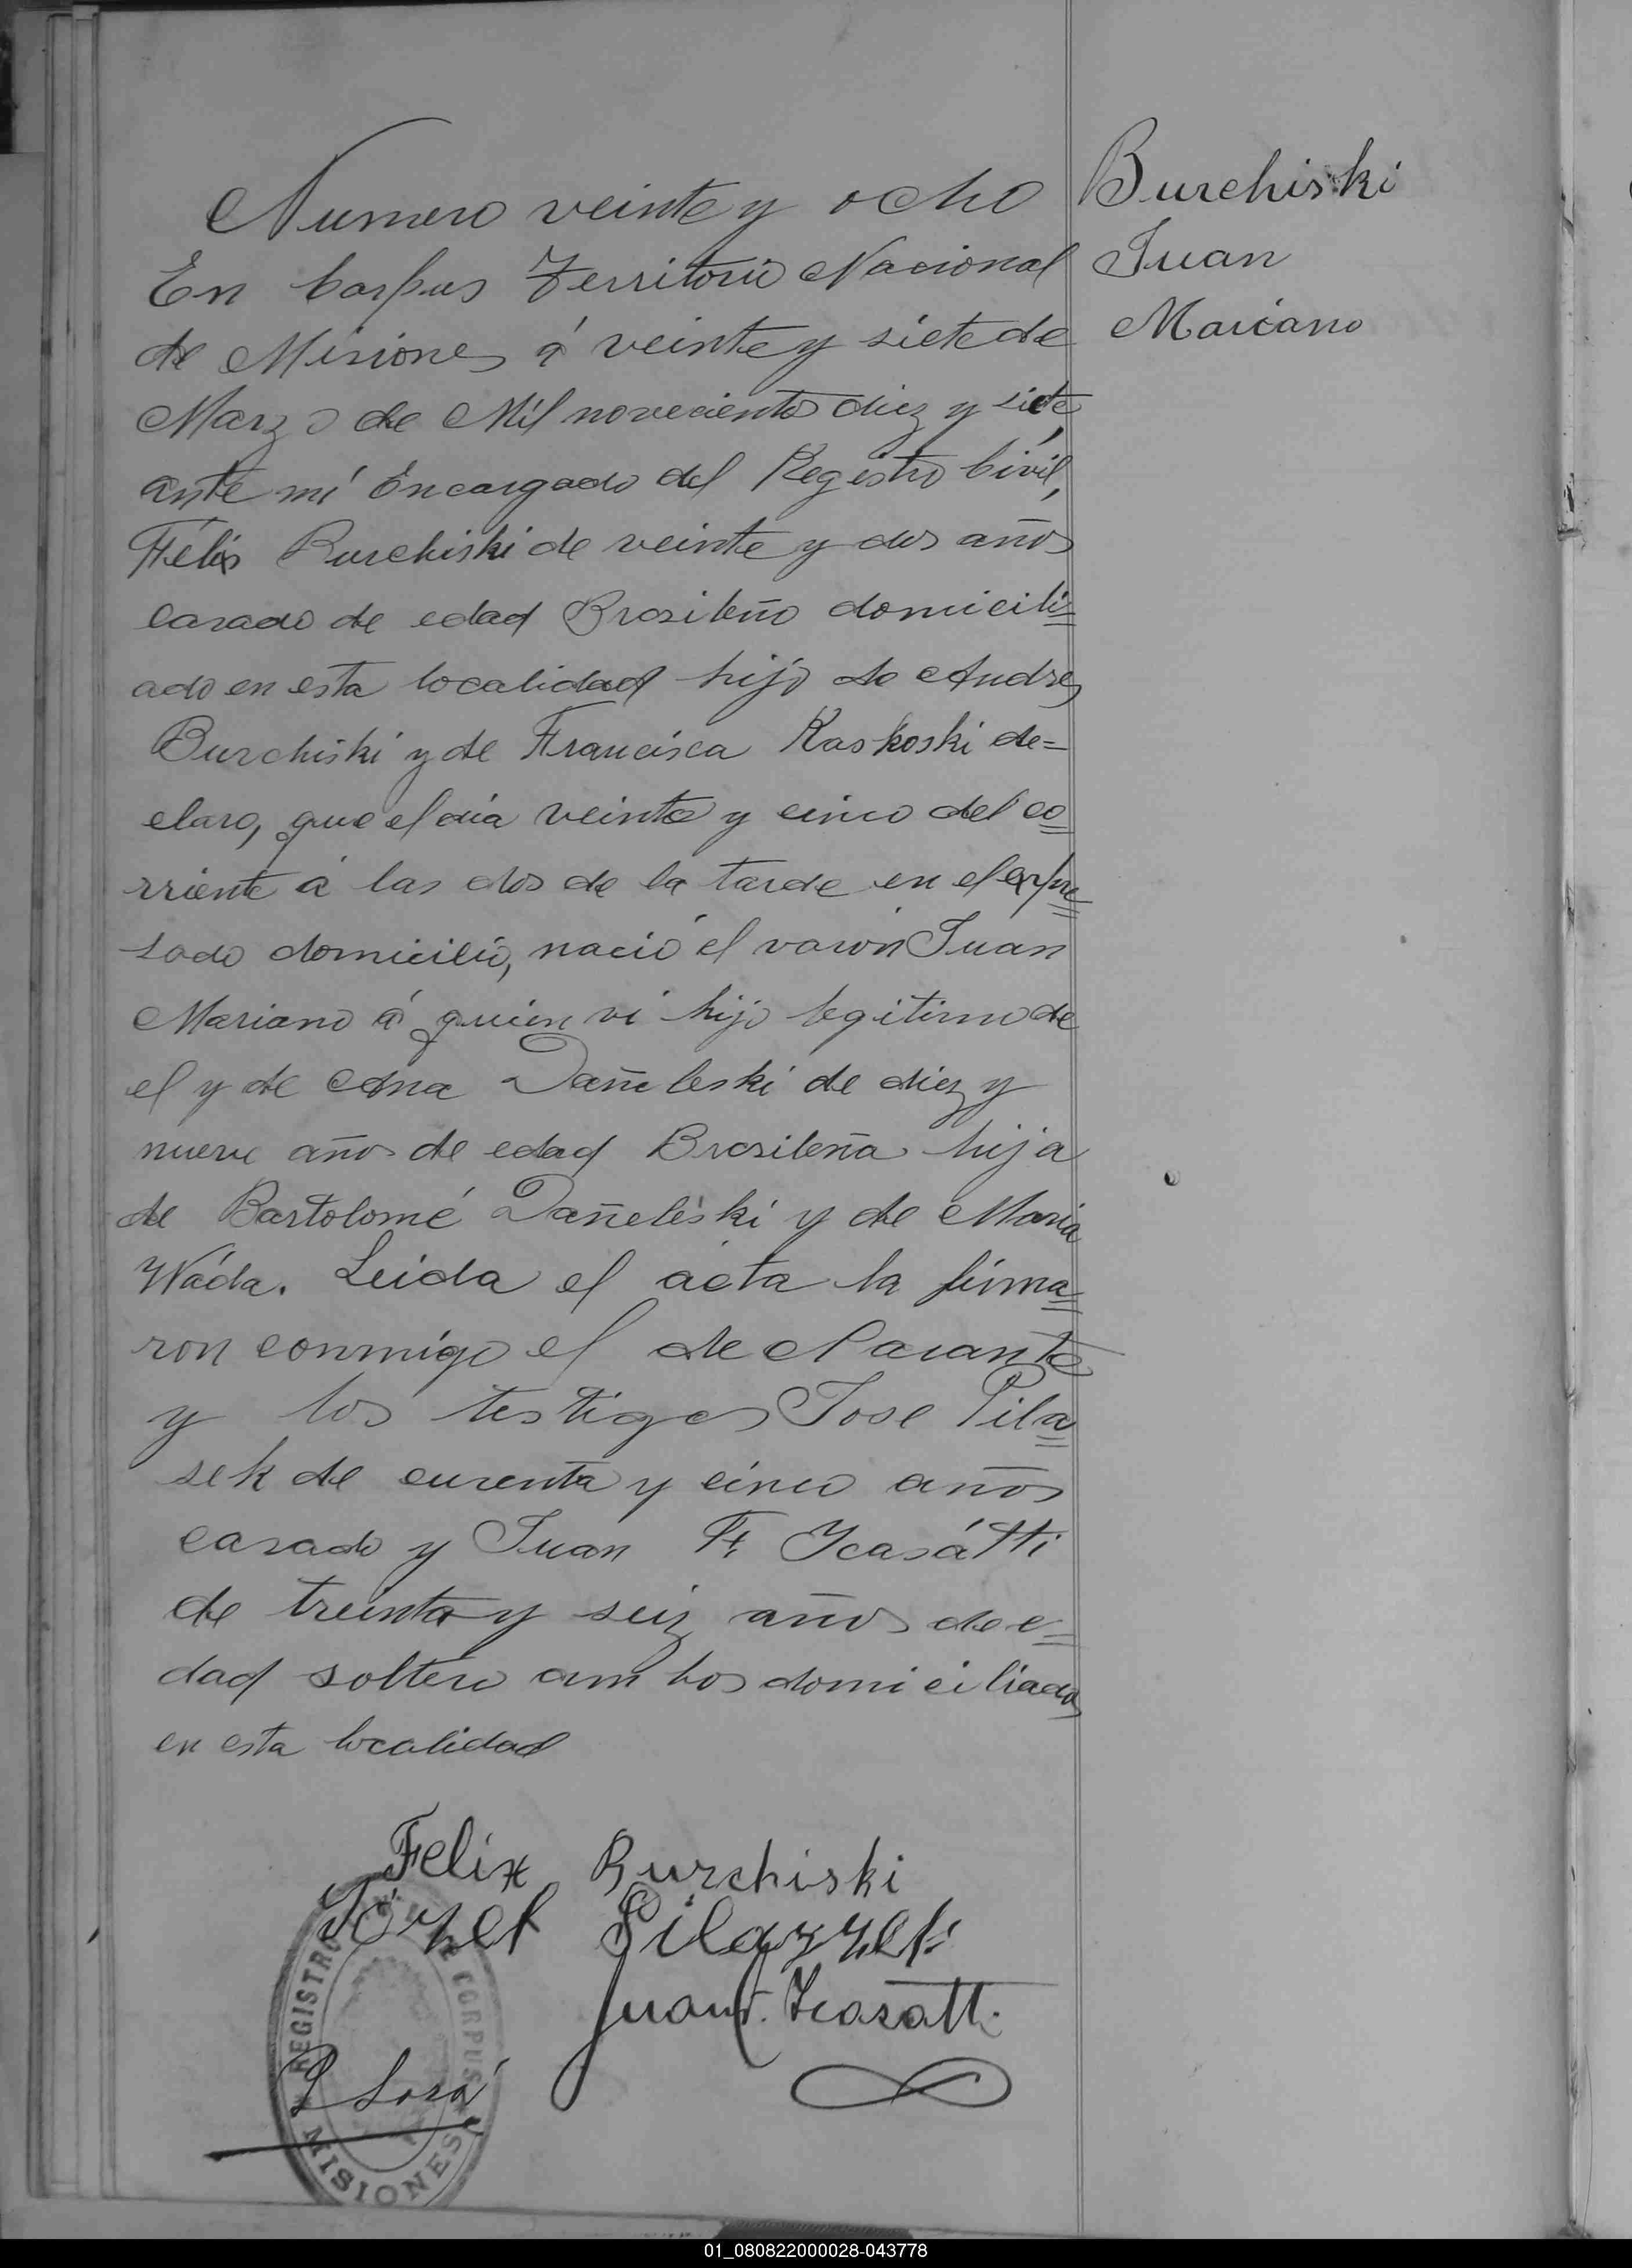 Numero veinte y ocho
Burchiski
Juan
Mariano
En Corpus Territorio Nacional
de Misiones á veinte y siete de
Marzo de Mil novecientos diez y siete,
ante mí Encargado del Registro Civil,
Félix Burchiski de veinte y dos años
casado de edad Brasileño domicili=
ado en esta localidad hijo de Andres
Burchiski y de Francisca Kaskoski de=
claro, que el dia veinte y cinco del co=
rriente á las dos de la tarde en el expre=
sado domicilio, nació el varon Juan
Mariano á quien vi hijo legitimo de
el y de Ana Dañeleski de diez y
nueve años de edad Brasileña hija
de Bartolomé Dañeleski y de Maria
Wáda. Leida el acta la firma=
ron conmigo el declarante
y los testigos Jose Pila=
sek de curenta y cinco años
casado y Juan F. Ycasátti
de treinta y seiz años de e=
dad soltero ambos domiciliados
en esta localidad
Felix Burchiski
Józef Pilazzek
Juan F. Ycasatti
REGISTRO
CORPUS
MISIONES
01_080822000028-043778